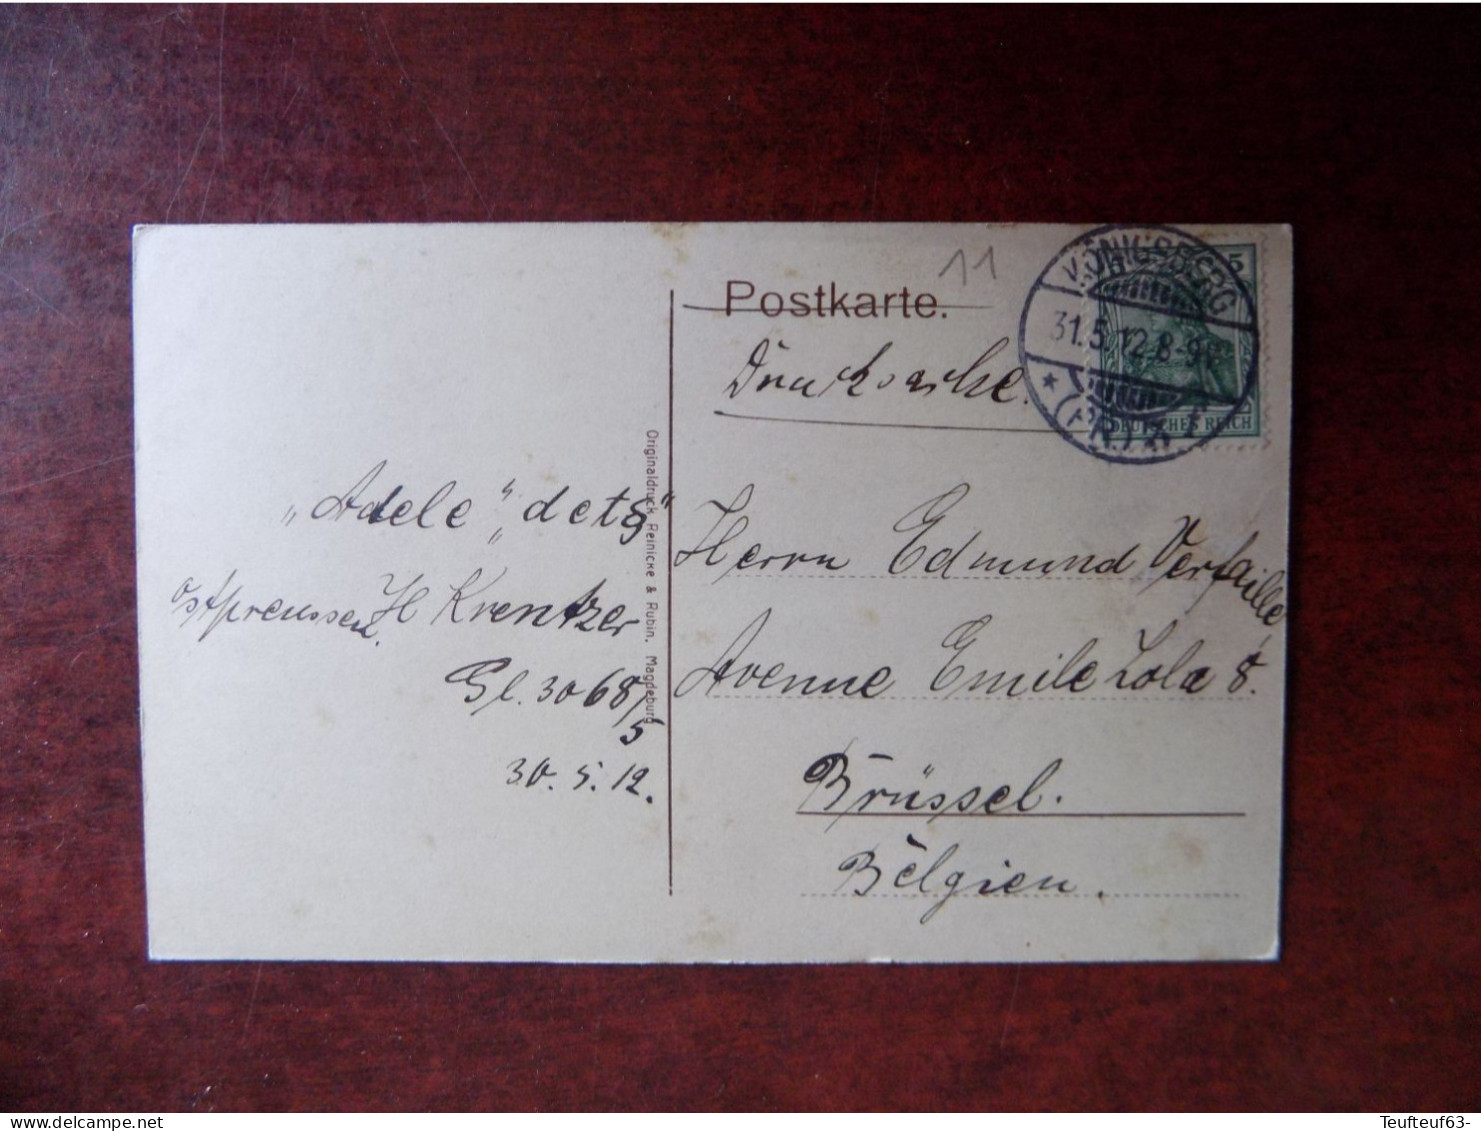 11
Postkarte.
Drucksache.
KÖNIGSBERG
31.5.12.8-9
* (PR.) *
5
DEUTSCHES REICH
„Adele“
Ostpreussen. H Krentzer
Gl. 3068/5
30.5.12.
Originaldruck Reinicke & Rubin, Magdeburg
Herrn Edmund Verfaille
Avenue Emile Zola 8.
Brüssel.
Belgien.
Teufteuf63-